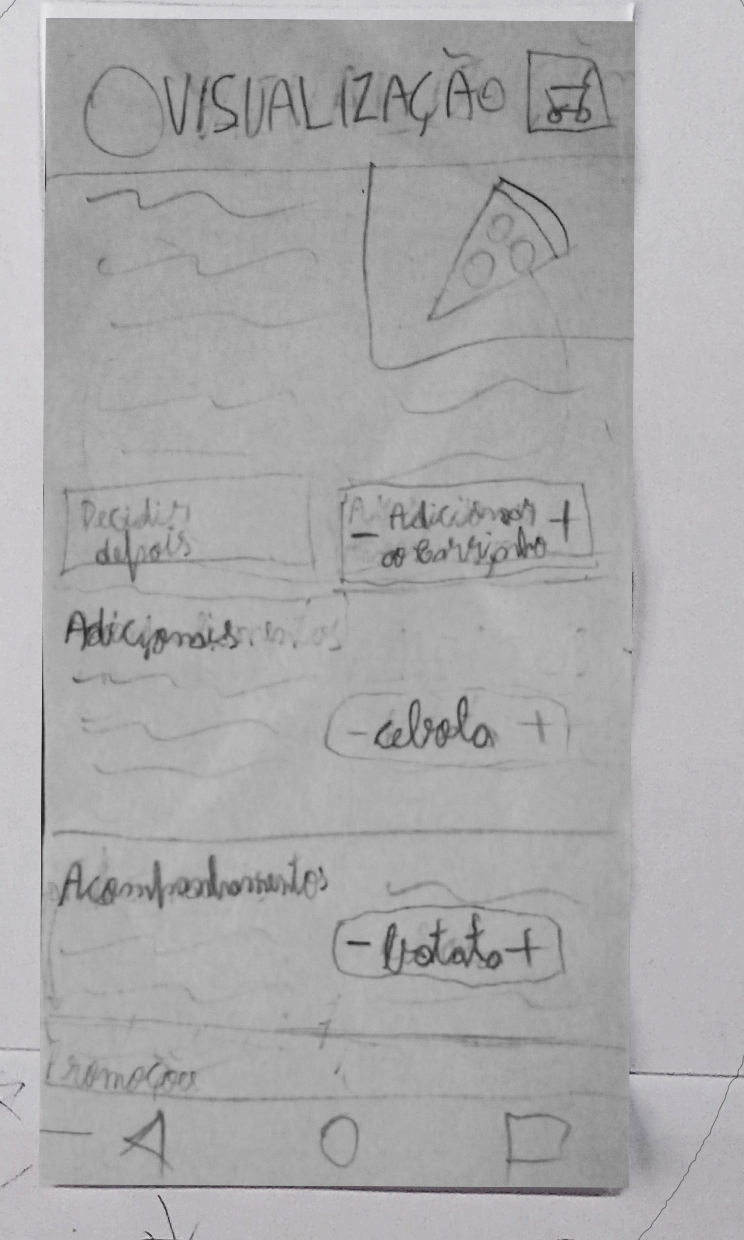 VISUALIZAÇÃO
Decidir
depois
- Adicionar +
ao Carrinho
Adicionais
- cebola +
Acompanhamentos
- batata +
Promoções